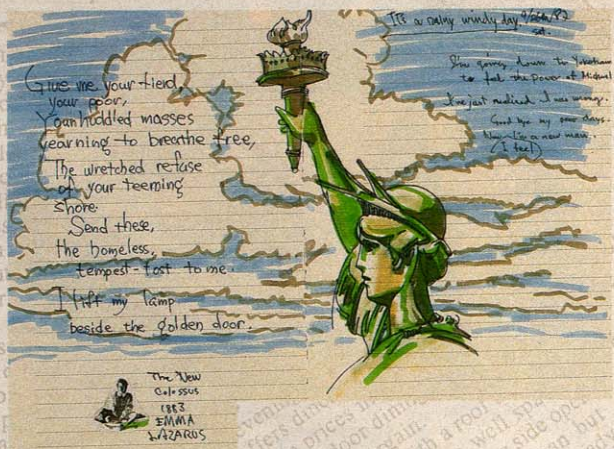 Give me your tierd,
your poor,
Your huddled masses
yearning to breathe free,
The wretched refuse
of your teeming
shore.
Send these,
the homeless,
tempest-tost to me.
I lift my lamp
beside the golden door.
The New
Colossus
1883
EMMA
LAZAROS
It's a rainy windy day
sat.
I'm going down to
to feel the power of Michael
I've just realized I was wrong.
Good bye my poor days.
Now I'm a new man.
(I feel)